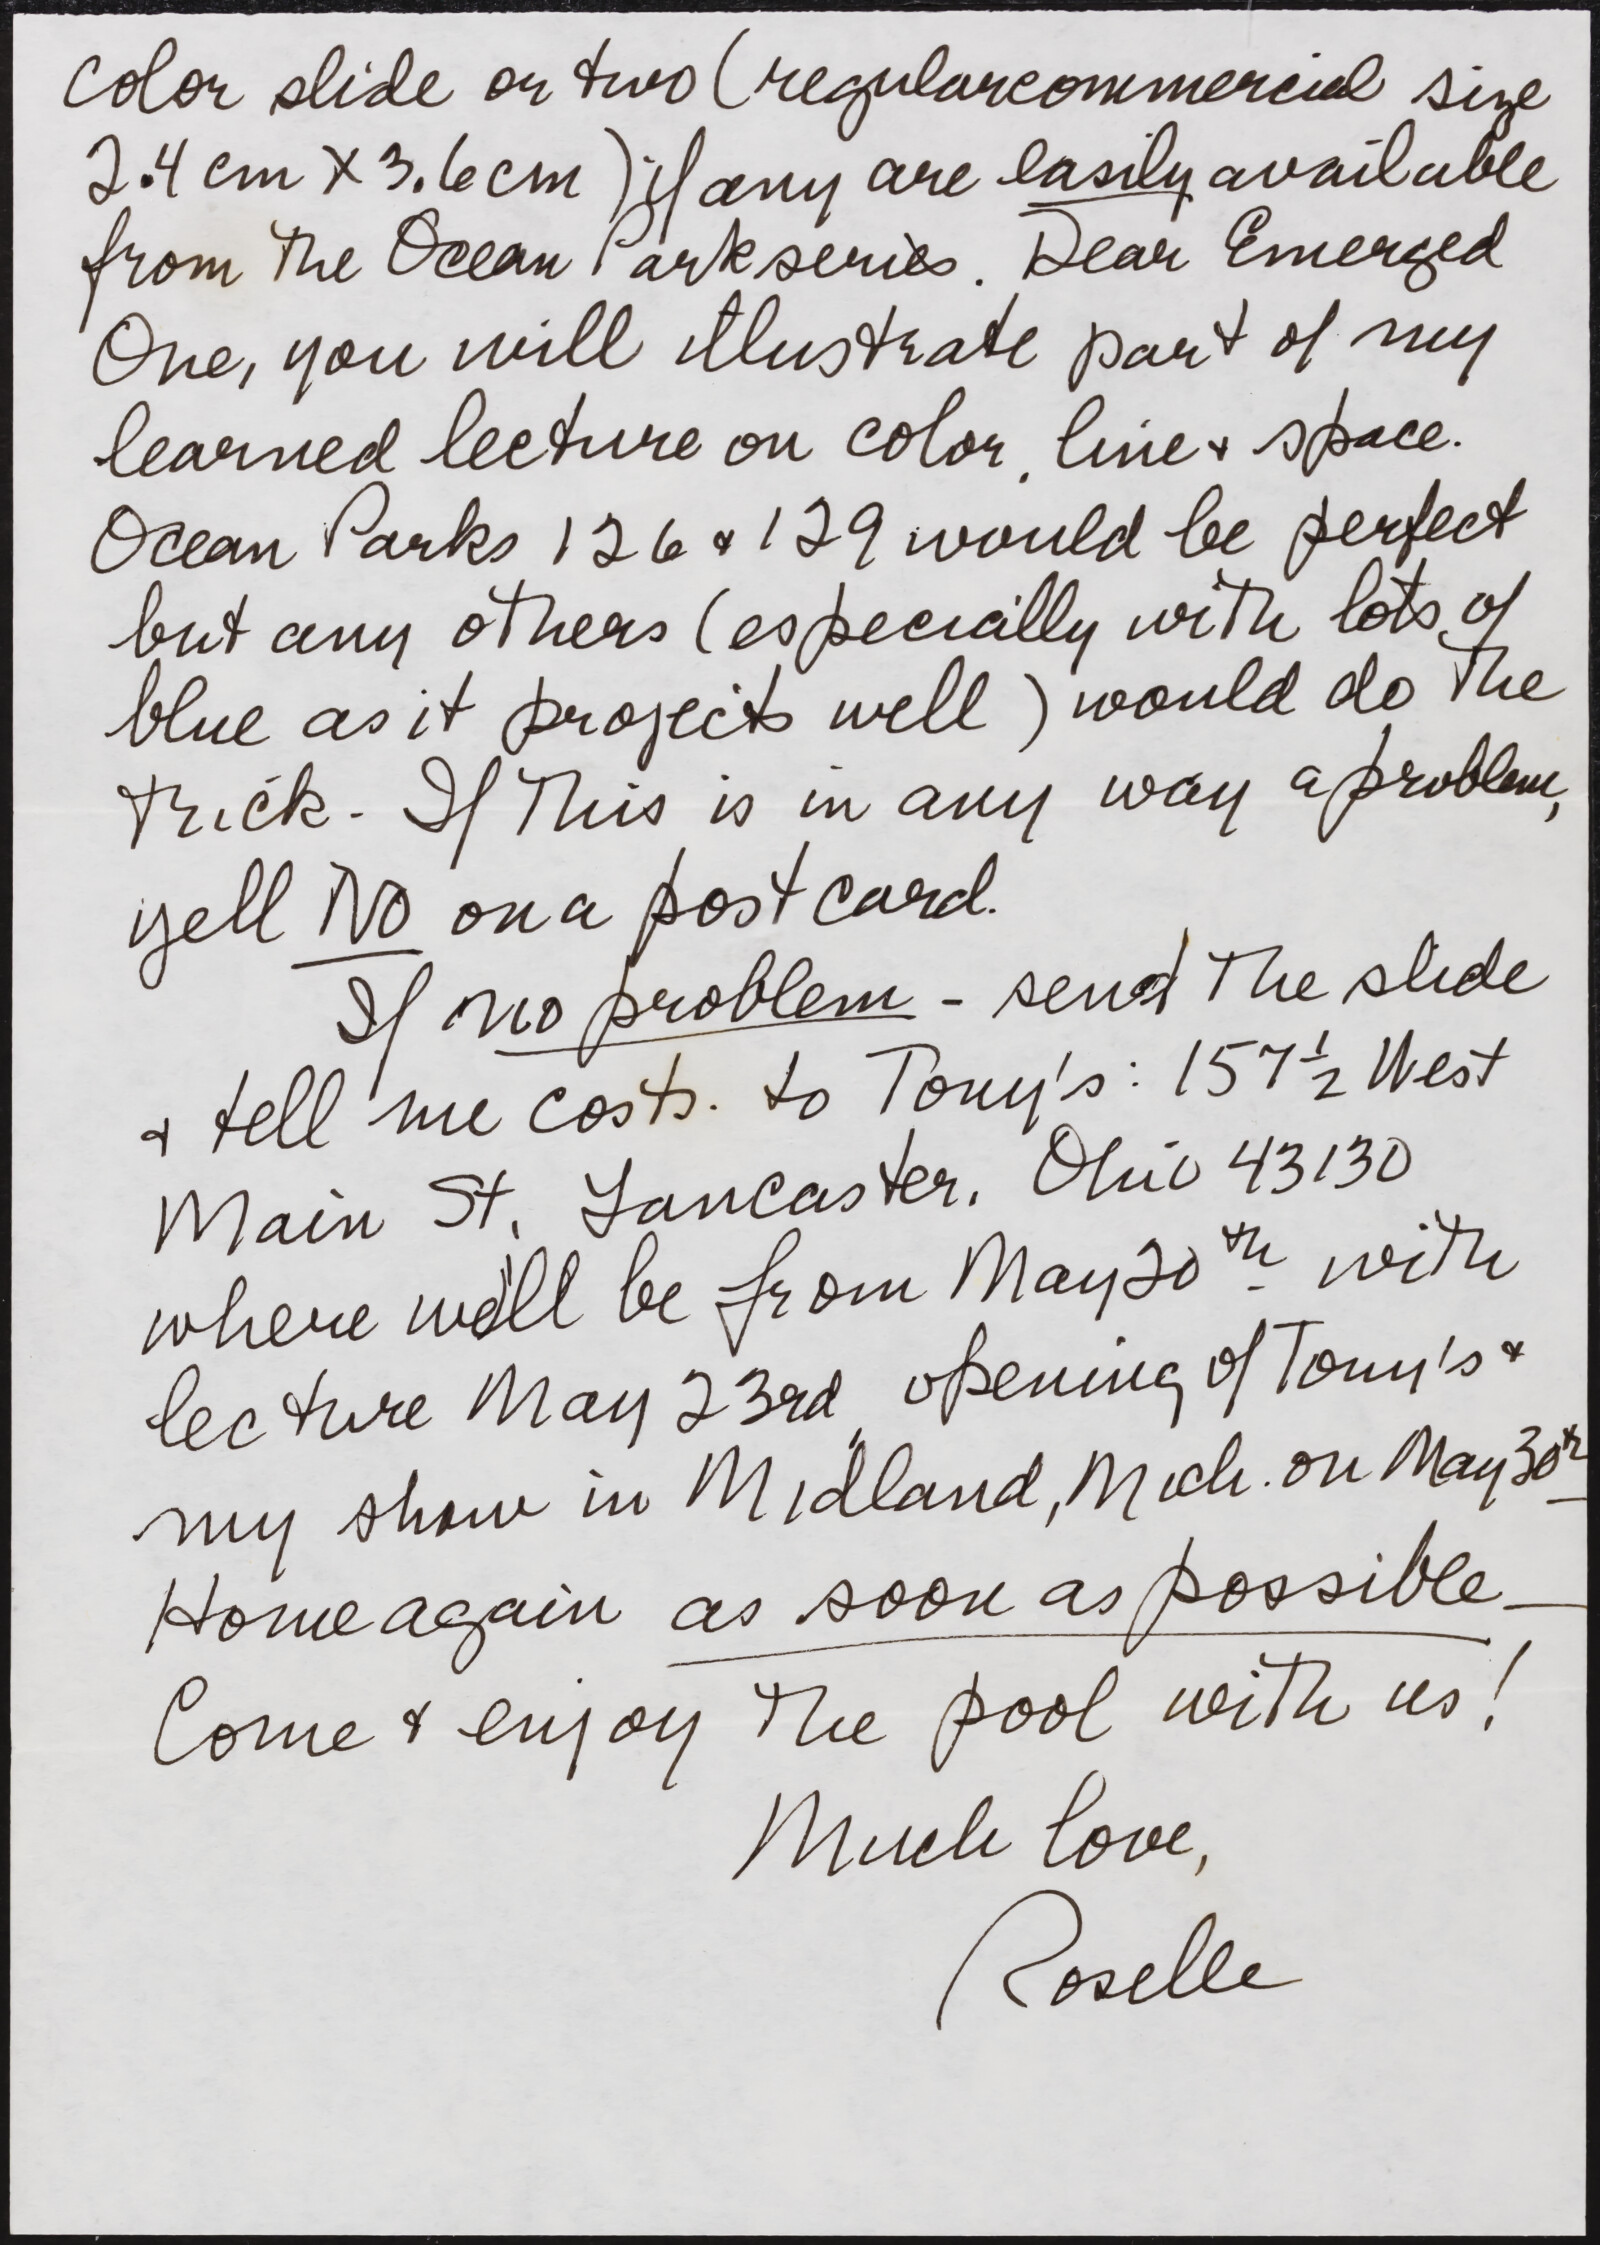 color slide or two (regular commercial size
2.4 cm X 3.6 cm) if any are easily available
from the Ocean Park series. Dear Emerged
One, you will illustrate part of my
learned lecture on color, line & space.
Ocean Parks 126 & 129 would be perfect
but any others (especially with lots of
blue as it projects well) would do the
trick. If this is in any way a problem,
yell NO on a post card.
If no problem - send the slide
& tell me costs. to Tony's: 157 1/2 West
Main St, Lancaster, Ohio 43130
where we'll be from May 20th with
lecture May 23rd, opening of Tony's &
my show in Midland, Mich. on May 30th
Home again as soon as possible—
Come & enjoy the pool with us!
Much love,
Roselle